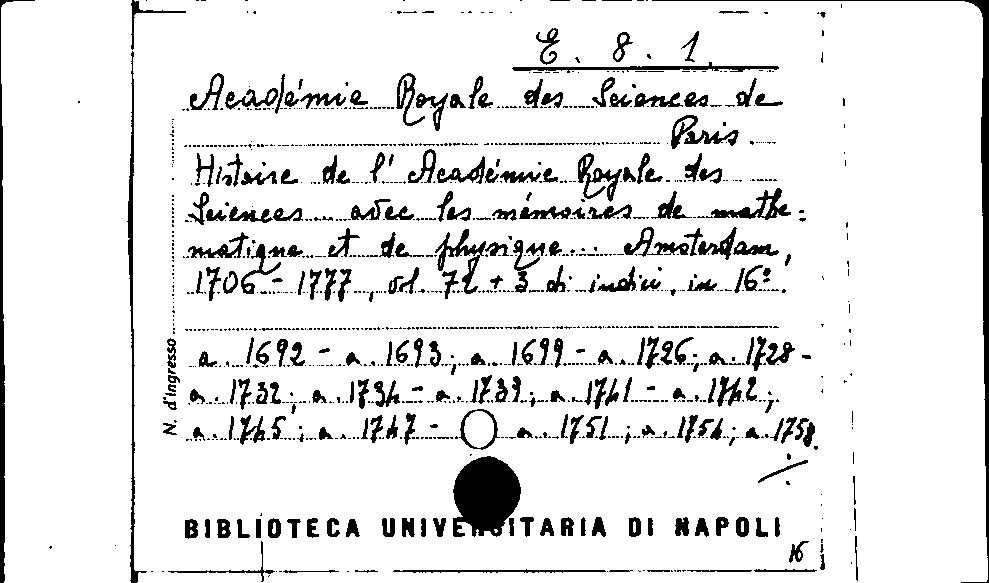 E. 8. 1.
Académie Royale des Sciences de
Paris.
Histoire de l' Académie Royale des
Sciences... avec les mémoires de mathe=
matique et de physique... Amsterdam,
1706 - 1777, vol. 72 + 3 di indici, in 16º.
a. 1692 - a. 1693; a. 1699 - a. 1726; a. 1728 -
a. 1732; a. 1734 - a. 1739; a. 1741 - a. 1742;
a. 1745; a. 1747 - a. 1751; a. 1754; a. 1758
N. d'ingresso
BIBLIOTECA UNIVERSITARIA DI NAPOLI
16